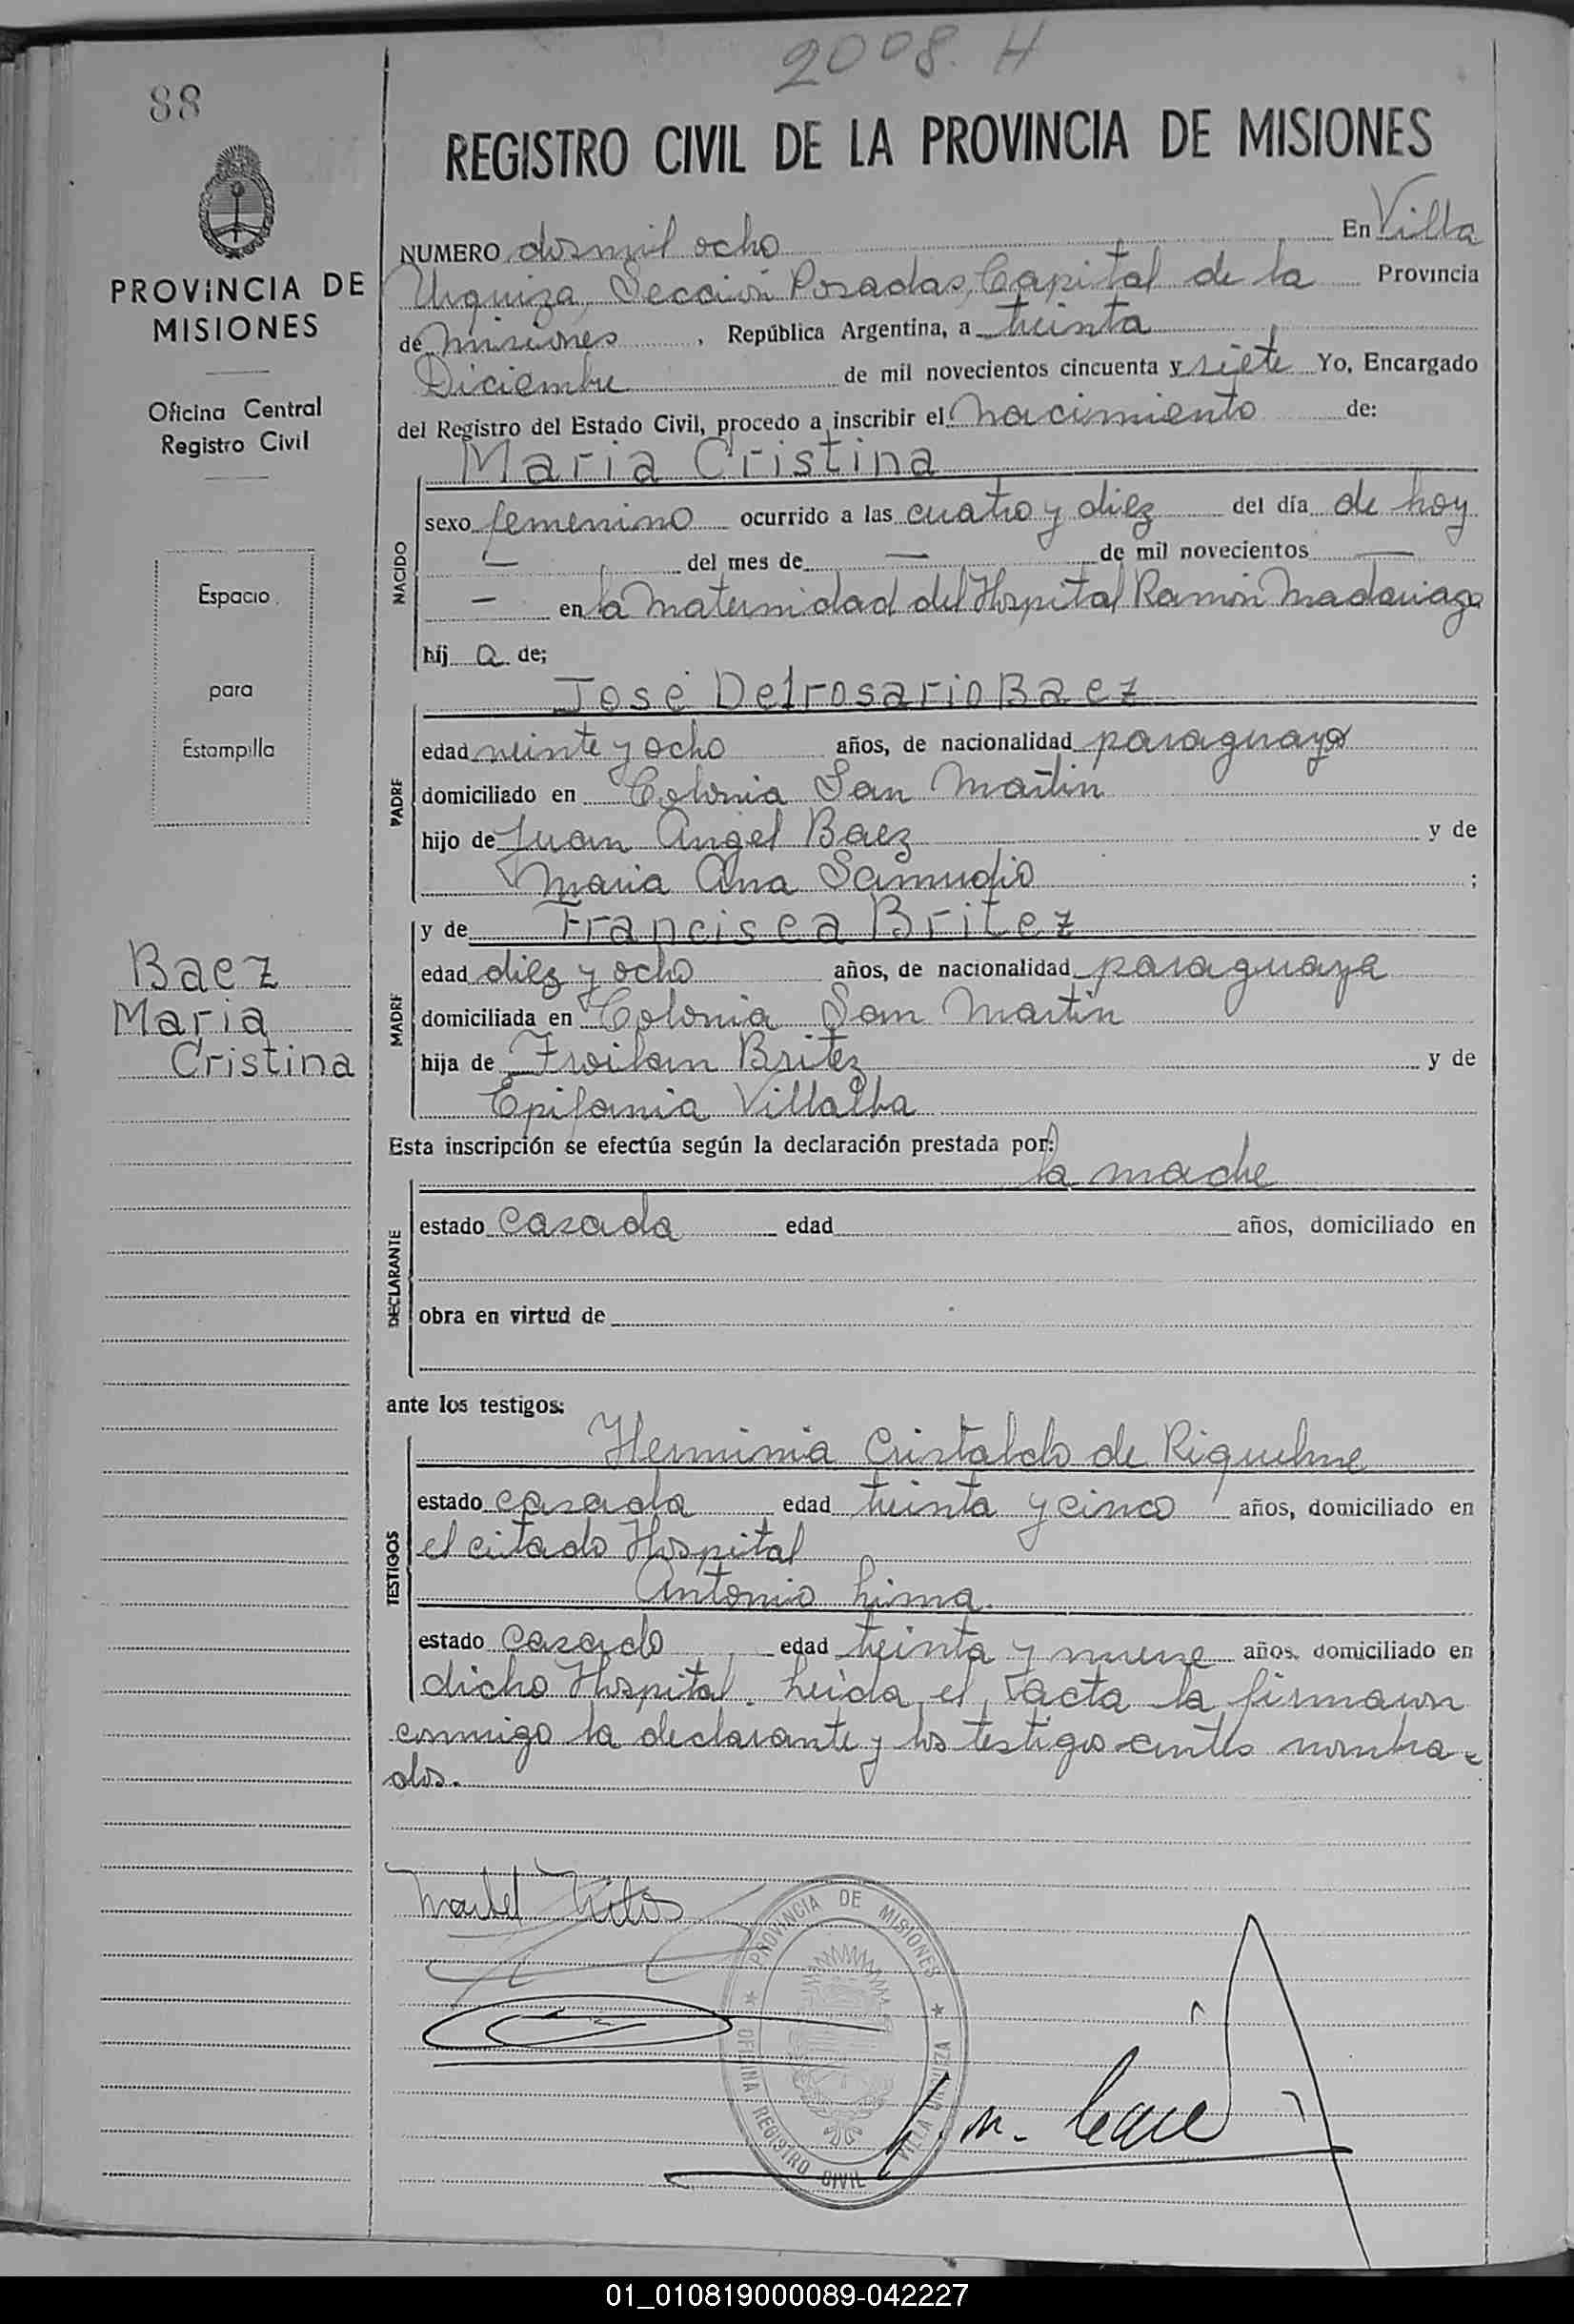 2008. H
88
REGISTRO CIVIL DE LA PROVINCIA DE MISIONES
PROVINCIA DE
MISIONES
Oficina Central
Registro Civil
Espacio
para
Estampilla
Baez
Maria
Cristina
NUMERO dosmil ocho En Villa
Urquiza, Sección Posadas, Capital de la Provincia
de Misiones, República Argentina, a treinta
Diciembre de mil novecientos cincuenta y siete Yo, Encargado
del Registro del Estado Civil, procedo a inscribir el nacimiento de:
Maria Cristina
NACIDO
sexo femenino ocurrido a las cuatro y diez del día de hoy
— del mes de — de mil novecientos —
— en la Maternidad del Hospital Ramón Madariaga
hij a de;
José Delrosario Baez
PADRE
edad veinte y ocho años, de nacionalidad paraguaya
domiciliado en Colonia San Martin
hijo de Juan Angel Baez y de
Maria Ana Samudio ;
y de Francisca Britez
MADRE
edad diez y ocho años, de nacionalidad paraguaya
domiciliada en Colonia San Martin
hija de Froilam Britez y de
Epifania Villalba
Esta inscripción se efectúa según la declaración prestada por:
la madre
DECLARANTE
estado casada edad años, domiciliado en
obra en virtud de
ante los testigos:
Herminia Cristaldo de Riquelme
TESTIGOS
estado casada edad treinta y cinco años, domiciliado en
el citado Hospital
Antonio Lima.
estado casado edad treinta y nueve años, domiciliado en
dicho Hospital. Leída el acta la firmaron
conmigo la declarante y los testigos antes nombra-
dos.
PROVINCIA DE MISIONES
OFICINA REGISTRO CIVIL VILLA URQUIZA
01_010819000089-042227